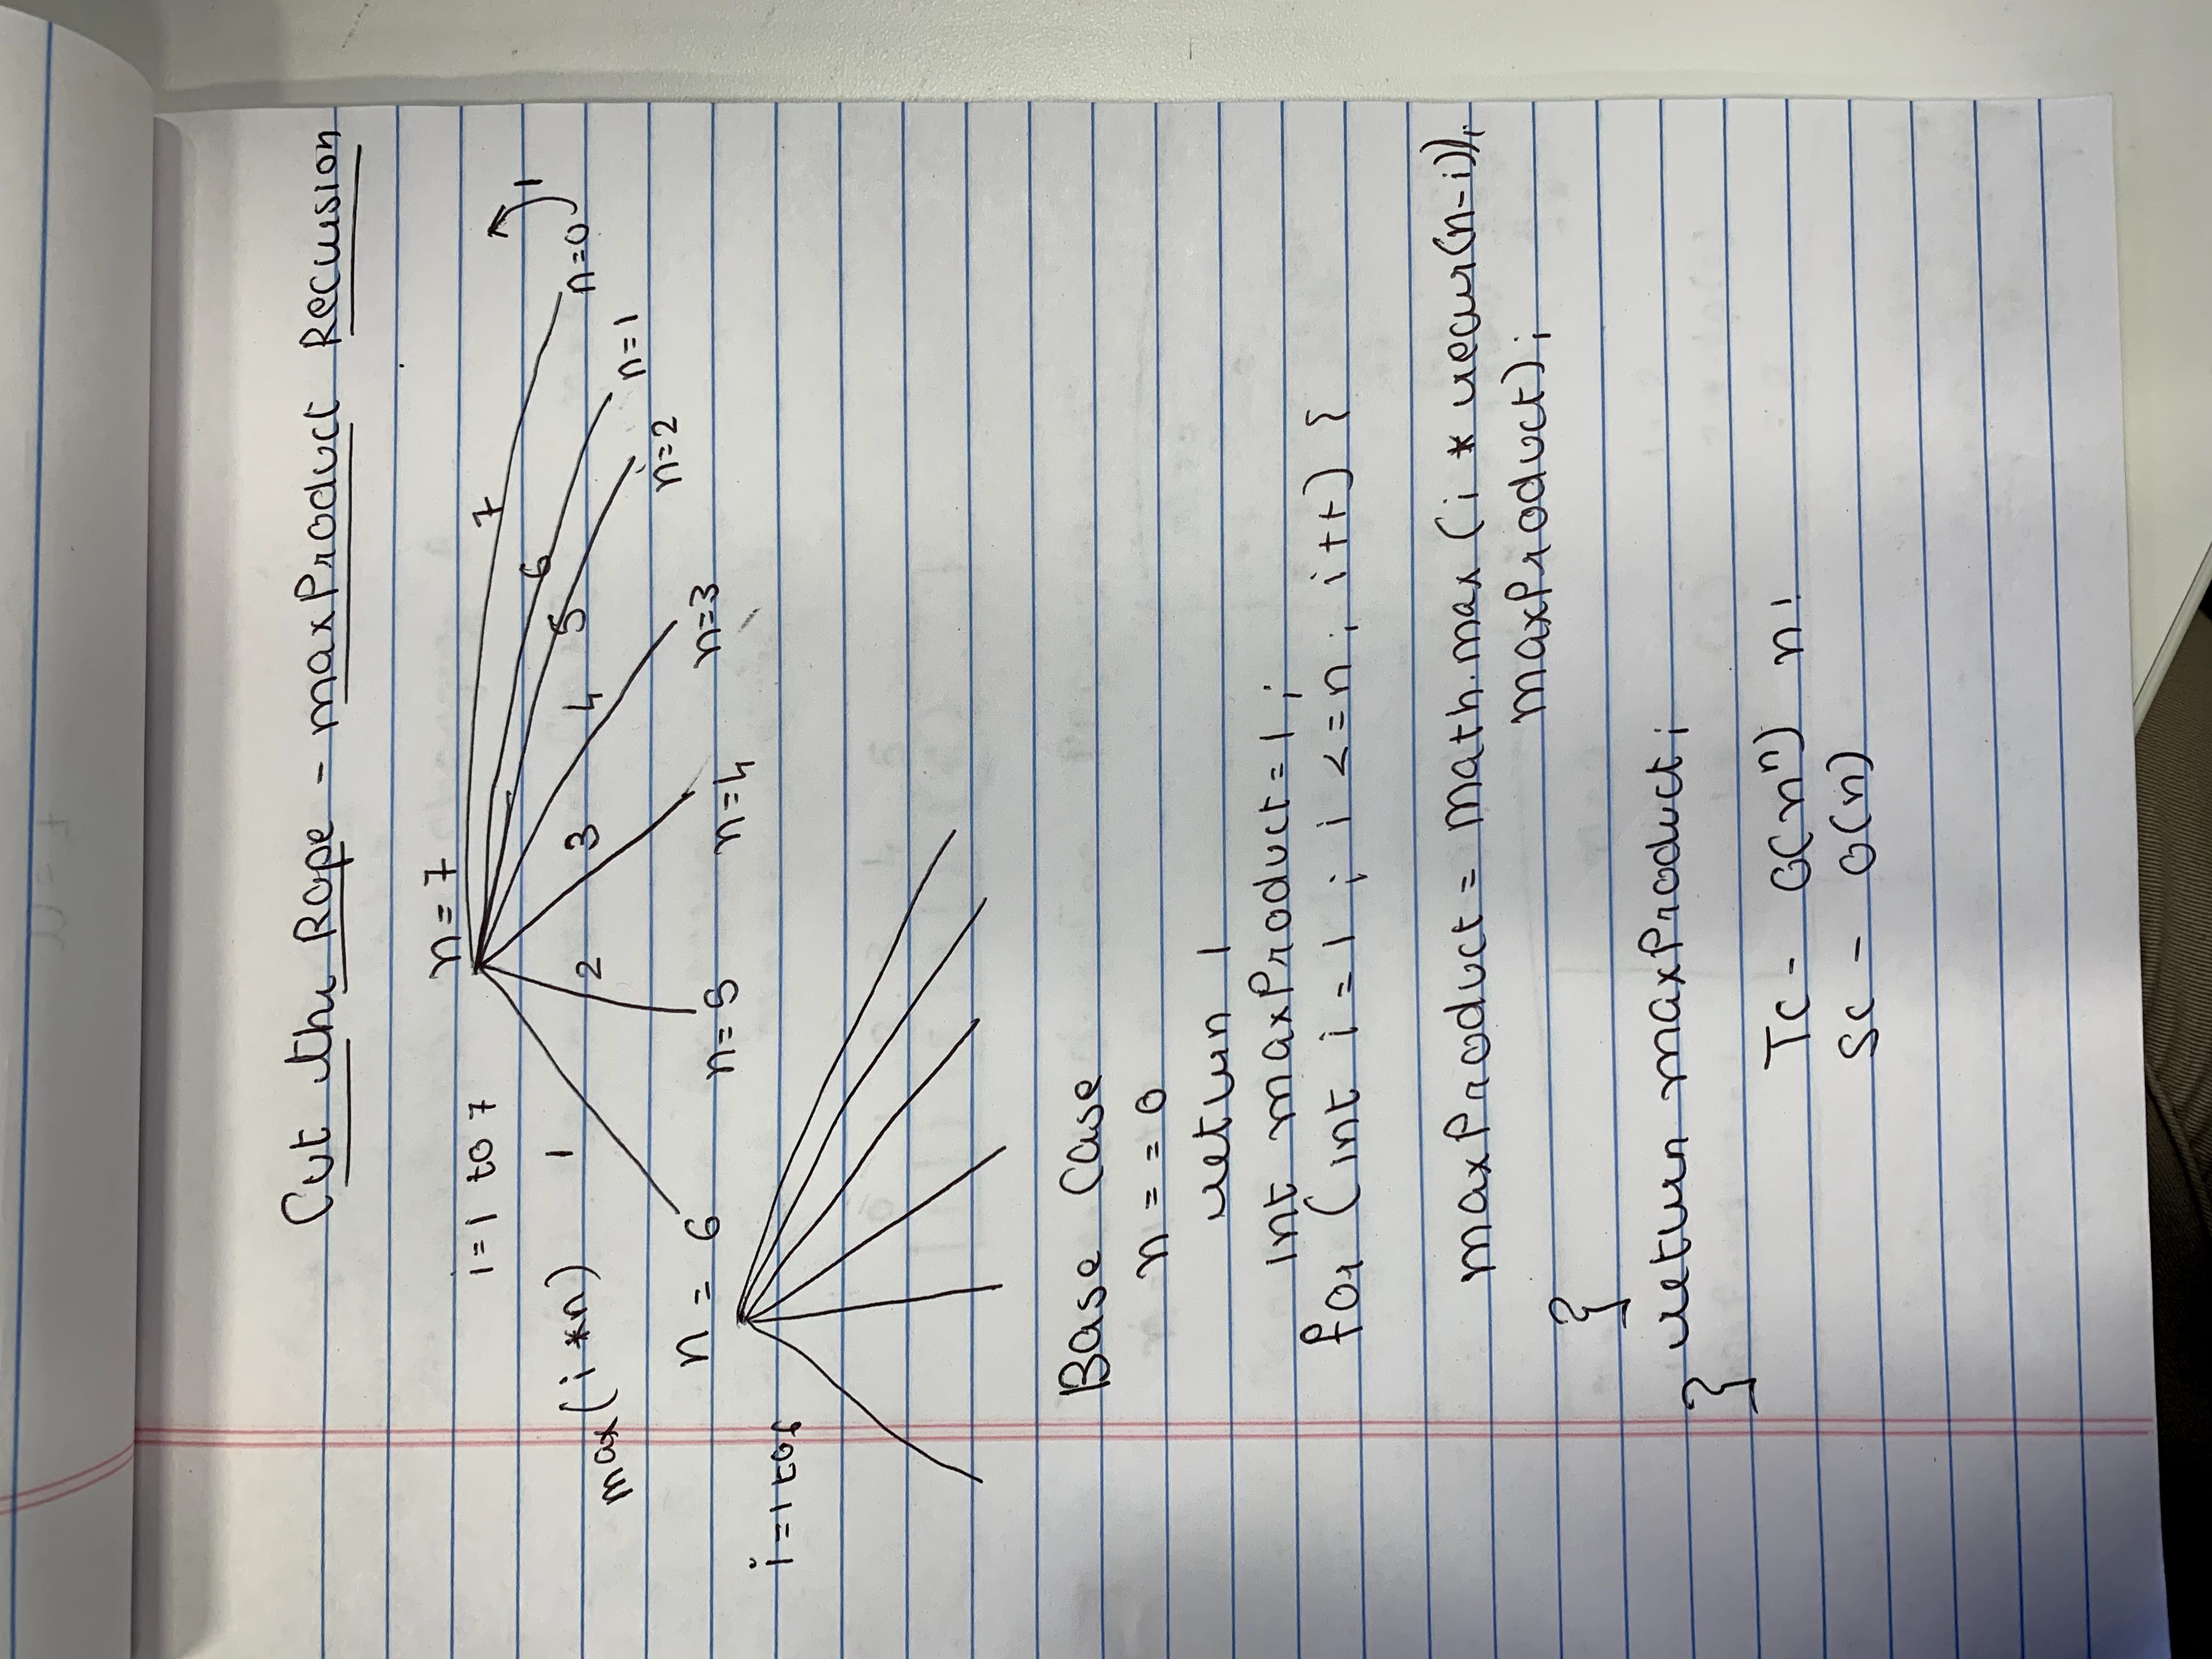 Cut the Rope - maxProduct Recursion
n = 7
i = 1 to 7
7
1
6
max(i *n)
1
2
3
4
5
n=0
n=1
n=2
n = 6
n= 5
n=4
n=3
i = 1 to 6
Base Case
n = = 0
return 1
int maxProduct = 1 ;
for (int i = 1 ; i <= n ; i++) {
maxProduct = Math.max (i * recur(n-i)),
maxProduct) ;
}
return maxProduct ;
}
TC - O(n^n) n!
SC - O(n)